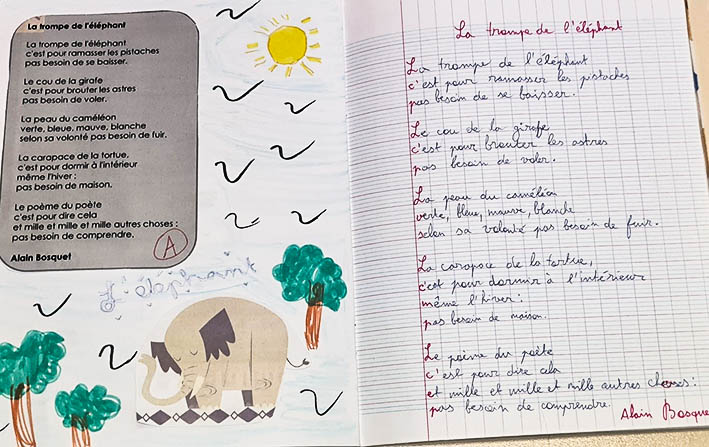 La trompe de l'éléphant
La trompe de l'éléphant
c'est pour ramasser les pistaches
pas besoin de se baisser.
Le cou de la girafe
c'est pour brouter les astres
pas besoin de voler.
La peau du caméléon
verte, bleue, mauve, blanche
selon sa volonté pas besoin de fuir.
La carapace de la tortue,
c'est pour dormir à l'intérieur
même l'hiver :
pas besoin de maison.
Le poème du poète
c'est pour dire cela
et mille et mille et mille autres choses :
pas besoin de comprendre.
Alain Bosquet
A
L'éléphant
La trompe de l'éléphant
La trompe de l'éléphant
c'est pour ramasser les pistaches
pas besoin de se baisser.
Le cou de la girafe
c'est pour brouter les astres
pas besoin de voler.
La peau du caméléon
verte, bleu, mauve, blanche
selon sa volonté pas besoin de fuir.
La carapace de la tortue,
c'est pour dormir à l'intérieur
même l'hiver :
pas besoin de maison.
Le poème du poète
c'est pour dire cela
et mille et mille et mille autres choses :
pas besoin de comprendre.
Alain Bosque